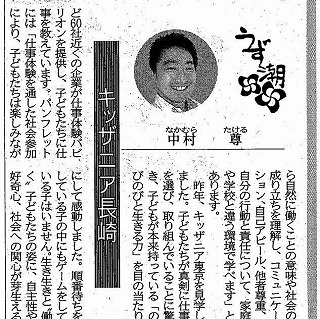 うず潮
中村 尊
なかむら たける
キッザニア長崎
ど60社近くの企業が仕事体験パビ
リオンを提供し、子どもたちに仕
事を教えています。パンフレット
には「仕事体験を通した社会参加
により、子どもたちは楽しみなが
ら自然に働くことの意味や社会の
成り立ちを理解し、コミュニケー
ション、自己アピール、他者尊重、
自分の行動と責任について、家庭
や学校と違う環境で学べます」と
あります。
昨年、キッザニア東京を見学し
ました。子どもたちが真剣に仕事
を選び、取り組んでいることに驚
き、子どもが本来持っている「の
びのびと生きる力」を目の当たり
にして感動しました。順番待ちを
している子の中にもゲームをして
いる子はいません。生き生きと働
く、子どもたちの姿に、自主性や
好奇心、社会への関心が芽生える